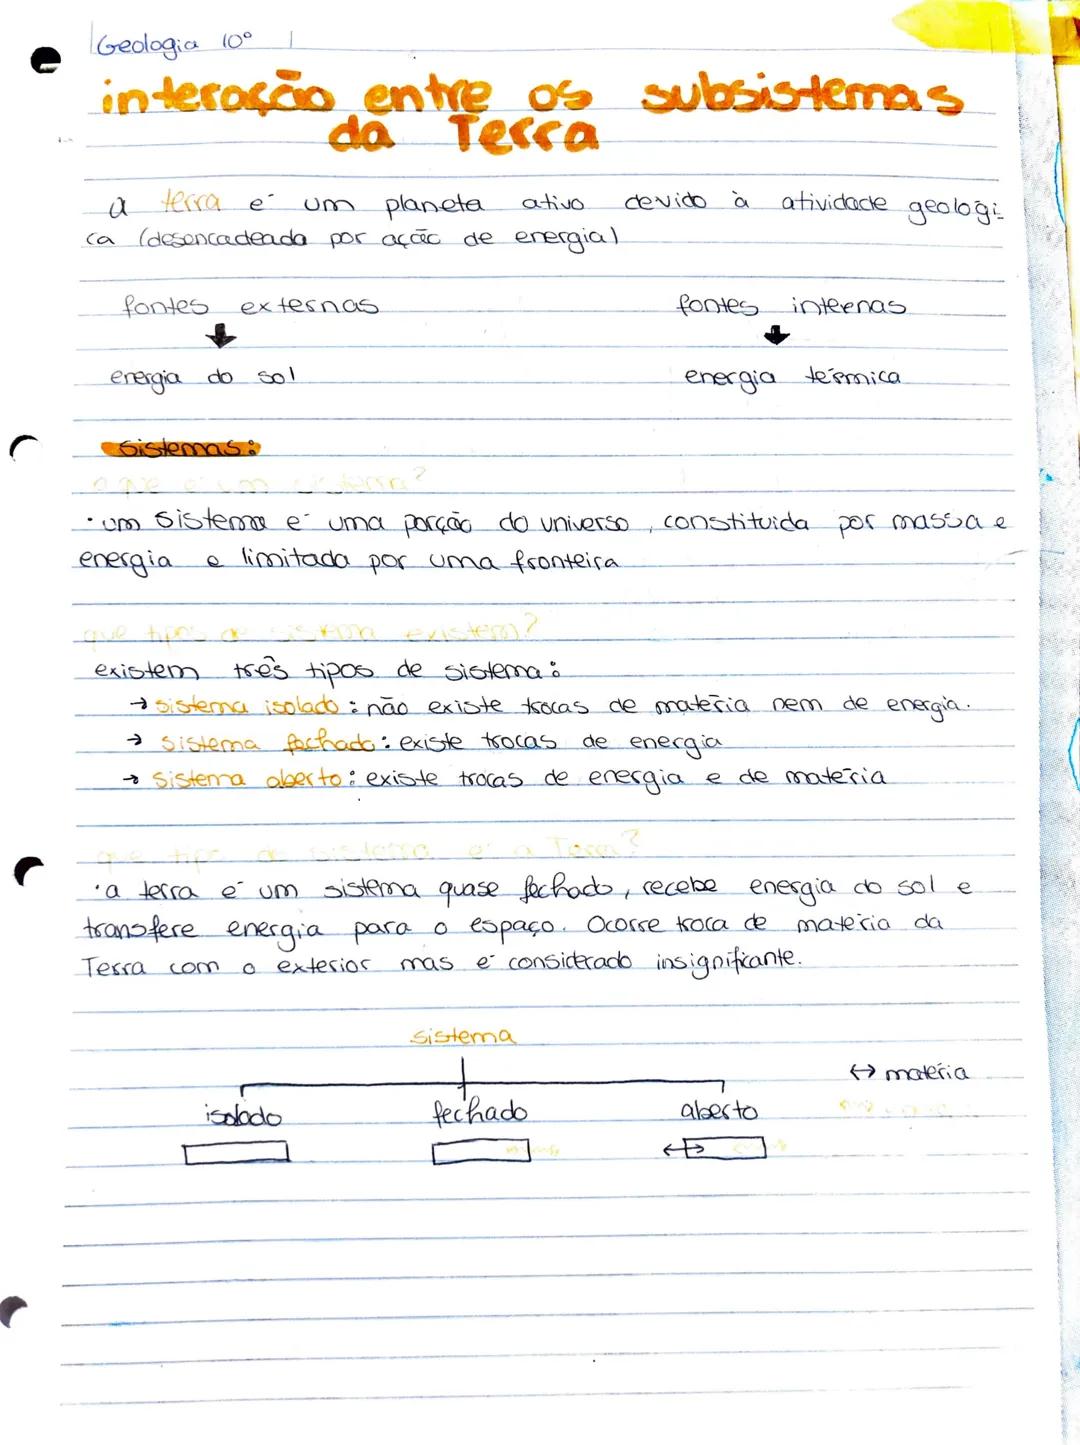 Geologia 10º
interação entre os subsistemas
da Terra
a terra é um planeta ativo devido à atividade geologi-
ca (desencadeada por ação de energia)
fontes externas fontes internas
energia do sol energia térmica
sistemas:
o que é um sistema?
• um sistema é uma porção do universo, constituida por massa e
energia e limitada por uma fronteira
que tipos de sistema existem?
existem três tipos de sistema:
→ sistema isolado: não existe trocas de matéria nem de energia.
→ sistema fechado: existe trocas de energia
→ sistema aberto: existe trocas de energia e de matéria
que tipo de sistema é a Terra?
• a terra é um sistema quase fechado, recebe energia do sol e
transfere energia para o espaço. Ocorre troca de matéria da
Terra com o exterior mas é considerado insignificante.
sistema
↔ matéria
isolado fechado aberto